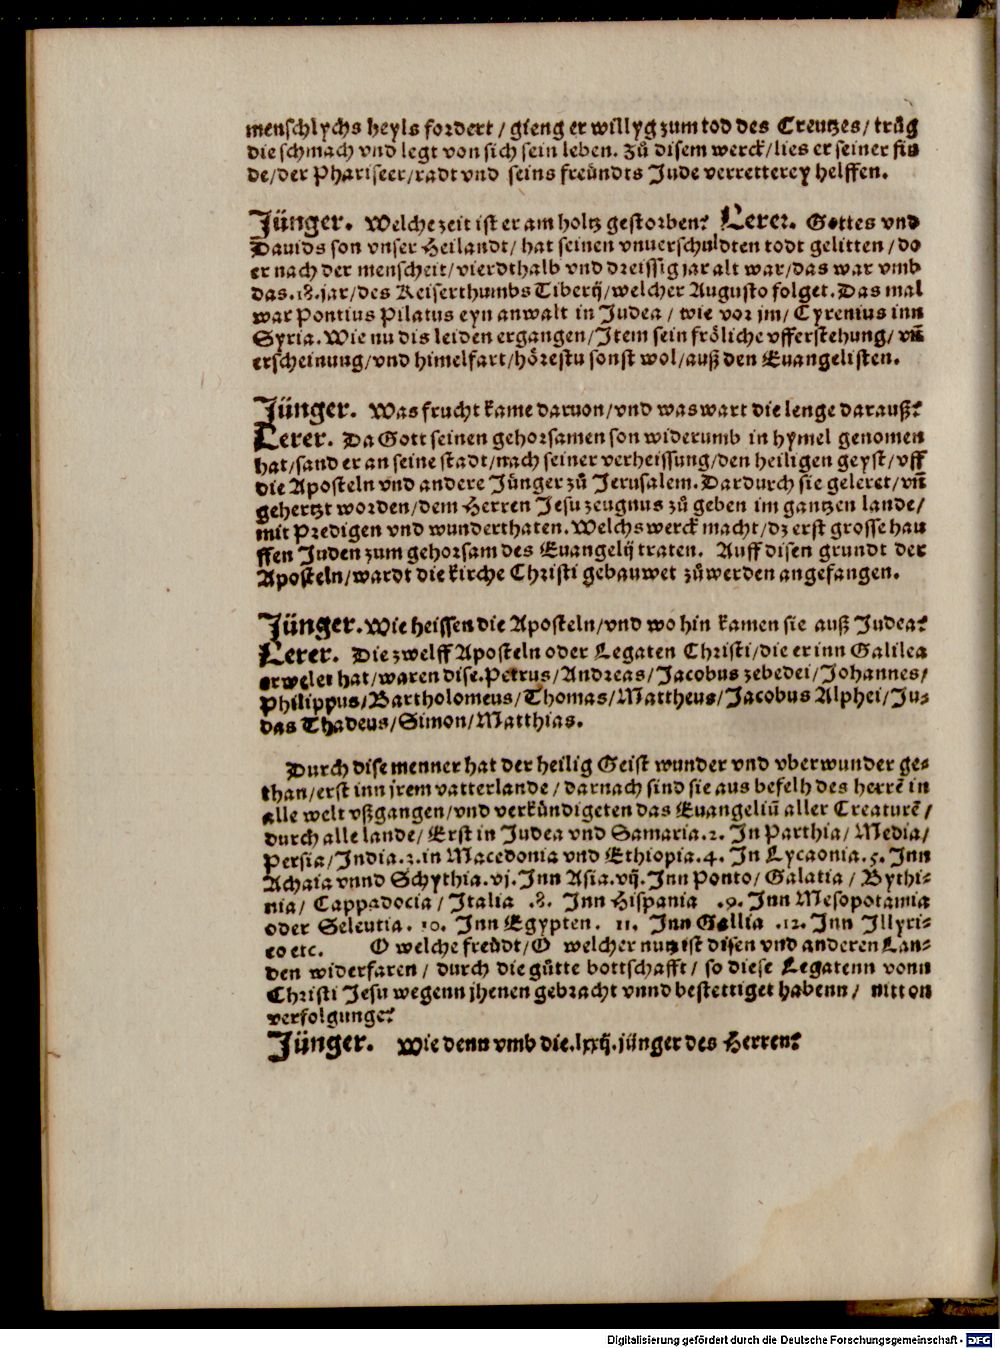 menschlychs heyls fordert / gieng er willyg zum tod des Creutzes / trůg
die schmach vnd legt von sich sein leben. Zů disem werck / lies er seiner fin
de / der Phariseer / radt vnd seins freündts Jude verretterey helffen.

Jünger. Welche zeit ist er am holtz gestorben? Lerer. Gottes vnd
Dauids son vnser Heilandt / hat seinen vnuerschuldten todt gelitten / do
er nach der menscheit / vierdthalb vnd dreissig jar alt war / das war vmb
das .18. jar / des Keiserthumbs Tiberij / welcher Augusto folget. Das mal
war Pontius Pilatus eyn anwalt in Judea / wie vor jm / Cyrenius inn
Syria. Wie nu dis leiden ergangen / Item sein fröliche vfferstehung / vñ
erscheinung / vnd himelfart / hörestu sonst wol / auß den Euangelisten.

Jünger. Was frucht kame daruon / vnd was wart die lenge darauß?
Lerer. Da Gott seinen gehorsamen son widerumb in hymel genomen
hat / sand er an seine stadt / nach seiner verheissung / den heiligen geyst / vff
die Aposteln vnd andere Jünger zů Jerusalem. Dardurch sie geleret / vñ
gehertzt worden / dem Herren Jesu zeugnus zů geben im gantzen lande /
mit Predigen vnd wunderthaten. Welchs werck macht / dz erst grosse hau
ffen Juden zum gehorsam des Euangelij traten. Auff disen grundt der
Aposteln / wardt die kirche Christi gebauwet zů werden angefangen.

Jünger. Wie heissen die Aposteln / vnd wo hin kamen sie auß Judea?
Lerer. Die zwelff Aposteln oder Legaten Christi / die er inn Galilea
erwelet hat / waren dise. Petrus / Andreas / Jacobus zebedei / Johannes /
Philippus / Bartholomeus / Thomas / Mattheus / Jacobus Alphei / Ju-
das Thadeus / Simon / Matthias.

Durch dise menner hat der heilig Geist wunder vnd vberwunder ge-
than / erst inn jrem vatterlande / darnach sind sie aus befelh des herrē in
alle welt vßgangen / vnd verkündigeten das Euangeliū aller Creaturē /
durch alle lande / Erst in Judea vnd Samaria. 2. In Parthia / Media /
Persia / India. 3. in Macedonia vnd Ethiopia. 4. In Lycaonia. 5. Inn
Achaia vnnd Schythia. vj. Inn Asia. vij. Inn Ponto / Galatia / Bythi-
nia / Cappadocia / Italia .8. Inn Hispania .9. Inn Mesopotamia
oder Seleutia. 10. Inn Egypten. 11. Inn Gallia .12. Inn Illyri-
co etc. O welche freüdt / O welcher nutz ist disen vnd anderen Lan-
den widerfaren / durch die gütte bottschafft / so diese Legatenn vonn
Christi Jesu wegenn jhenen gebracht vnnd bestettiget habenn / nitt on
verfolgunge?
Jünger. Wie denn vmb die .lxxij. jünger des Herren?

Digitalisierung gefördert durch die Deutsche Forschungsgemeinschaft - DFG